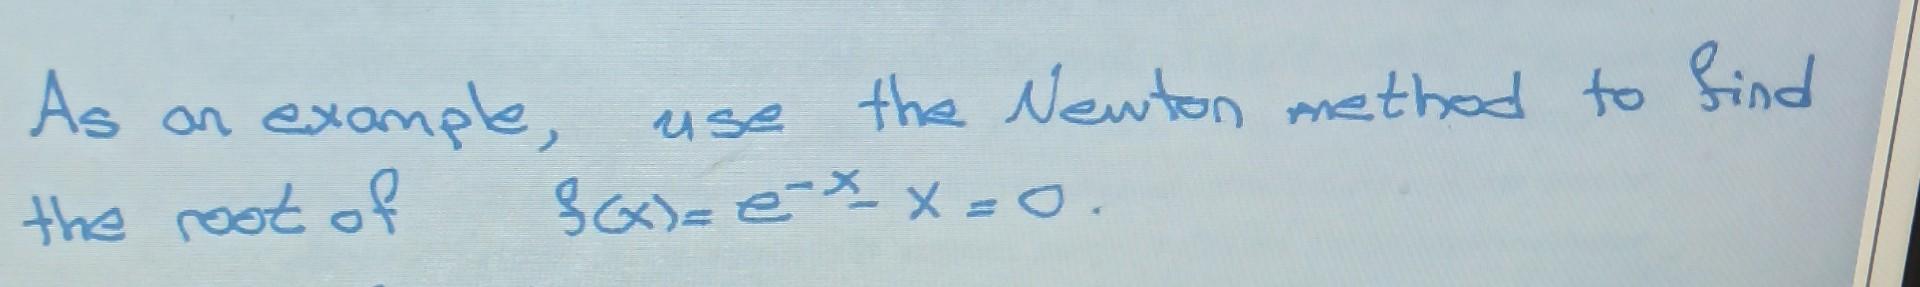 As an example, use the Newton method to find
the root of f(x) = e^{-x} - x = 0.